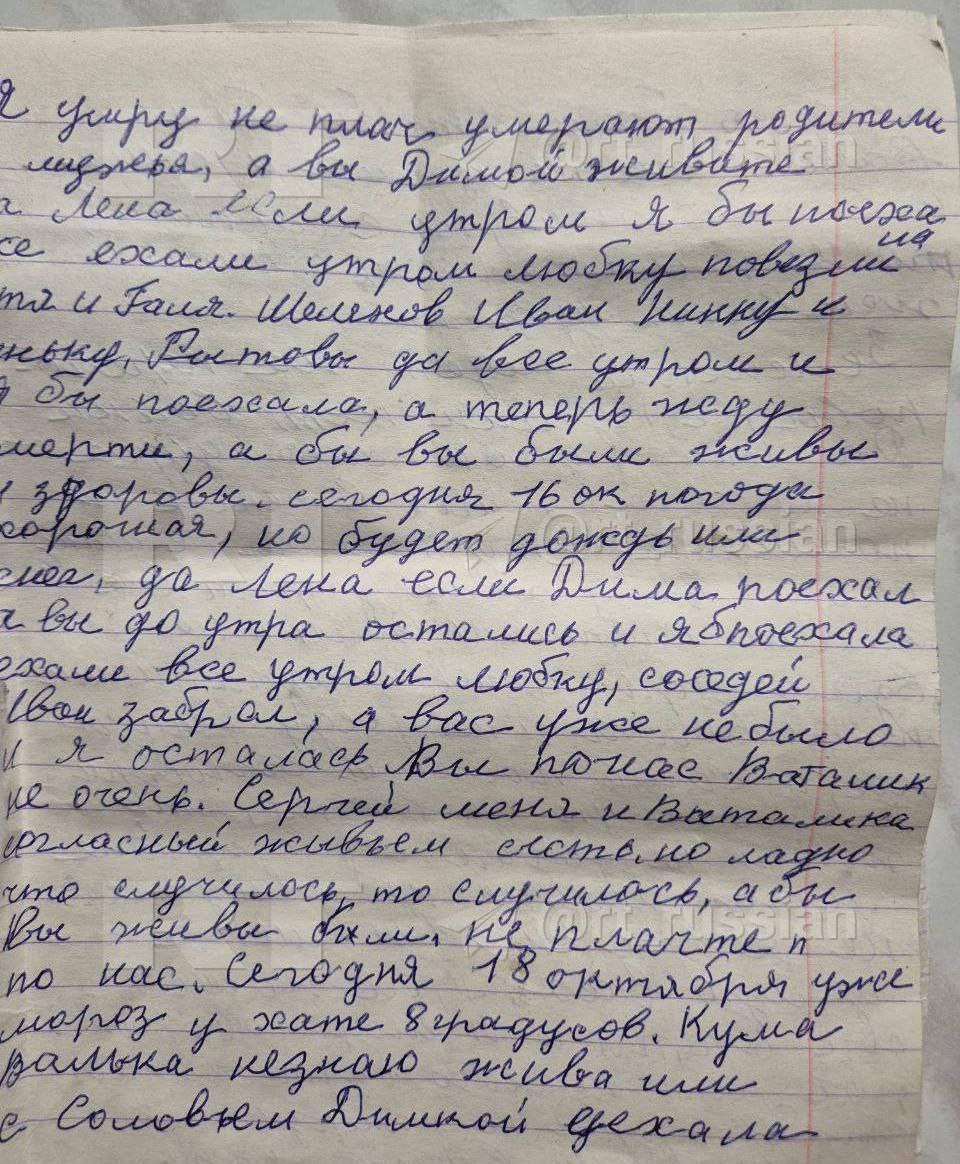 я умру не плач умерают родители
мужья, а вы Димой живите
а Лена если утром я бы поеха
се ехали утром любку повезли
на
тя и Галя. Шеленов Иван Нинку и
нбку, Рытовы да все утром и
я бы поехала, а теперь жду
мерти, а бы вы были живы
и здоровы. сегодня 16 ок погода
хорошая, но будет дождь или
снег, да Лена если Дима поехал
а вы до утра остались и я б поехала
ехали все утром любку, соседей
Иван забрал, а вас уже небыло
и я осталась Вы понас Ваталик
не очень. Сергей меня и Ваталика
согласный жывьем сьесть, но ладно
что случилось, то случилось, абы
Вы живы были. не плачте п
по нас. Сегодня 18 октября уже
мороз у хате 8 градусов. Кума
валька незнаю жива или
с Соловьем Димкой уехала
@rt_russian
@rt_russian
@rt_russian